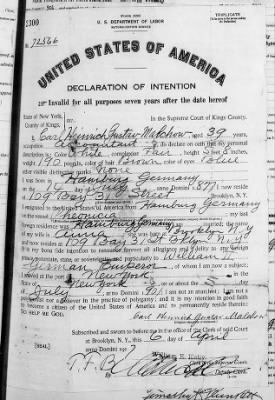 U. S. DEPARTMENT OF LABOR
TRIPLICATE
No. 72566
UNITED STATES OF AMERICA
DECLARATION OF INTENTION
Invalid for all purposes seven years after the date hereof
State of New York,
County of Kings,
In the Supreme Court of Kings County.
Carl Heinrich Gustav Malchow, aged 39 years,
occupation Accountant, do declare on oath that my personal
description is: Color White, complexion Fair, height 5 feet 8 inches,
weight 190 pounds, color of hair Brown, color of eyes Blue
other visible distinctive marks None
I was born in Hamburg Germany
on the day of July, anno Domini 1877; I now reside
at 109 Bay 31 Street
I emigrated to the United States of America from Hamburg Germany
on the vessel; my last
foreign residence was Hamburg Germany
and now resides at 109 Bay 31 St Bklyn N.Y.
It is my bona fide intention to renounce forever all allegiance and fidelity to any foreign
prince, potentate, state, or sovereignty, and particularly to William II
German Emperor, of whom I am now a subject;
I arrived at the port of New York, in the
State of New York, on or about the day
of July, anno Domini; I am not an anarchist; I am not a
polygamist nor a believer in the practice of polygamy; and it is my intention in good faith
to become a citizen of the United States of America and to permanently reside therein:
SO HELP ME GOD.
Carl Heinrich Gustav Malchow
Subscribed and sworn to before me in the office of the Clerk of said Court
at Brooklyn, N. Y., this 6 day of April
anno Domini 1917
[SEAL]
Clerk of the Supreme Court.